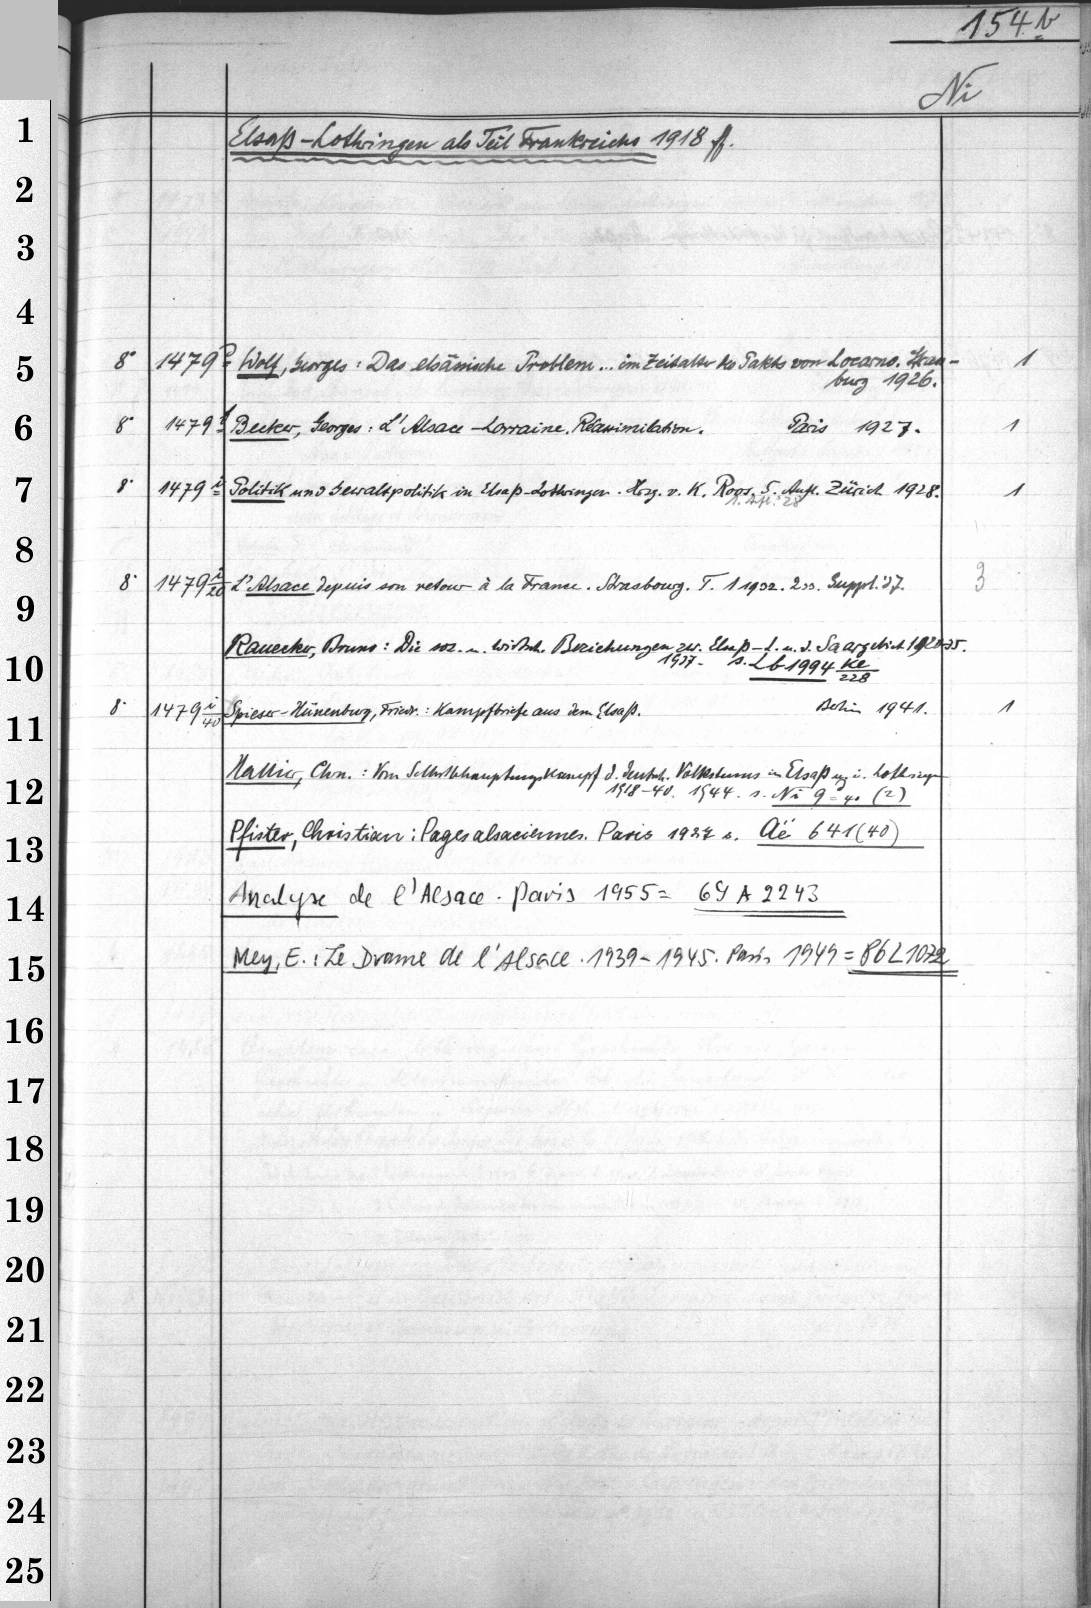 154 b
Ni
Elsaß-Lothringen als Teil Frankreichs 1918 ff.
8° 1479 e Wolf, Georges: Das elsässische Problem... im Zeitalter des Pakts von Locarno. Straß-
burg 1926. 1
8° 1479 f Becker, Georges: L'Alsace-Lorraine. Réassimilation. Paris 1927. 1
8° 1479 i Politik und Gewaltpolitik in Elsaß-Lothringen. Hrsg. v. K. Roos. 5. Aufl. Zürich 1928. 1
1. Aufl. 28
8° 1479 i/20 L'Alsace depuis son retour à la France. Strasbourg. T. 1 1932. 2 33. Suppl. 37. 3
Rauecker, Bruno: Die soz. u. wirtsch. Beziehungen zw. Elsaß-L. u. d. Saargebiet 1920-35.
1937. s. Lb 1994 Ke/228
8° 1479 i/40 Spieser-Hünenburg, Friedr.: Kampfbriefe aus dem Elsaß. Berlin 1941. 1
Hallier, Chn.: Vom Selbstbehauptungskampf d. deutsch. Volkstums im Elsaß u. i. Lothringen
1918-40. 1944. s. Ni 9 = 40 (2)
Pfister, Christian: Pages alsaciennes. Paris 1927 s. Aé 641(40)
Analyse de l'Alsace. Paris 1955 = 69 A 2243
Mey, E.: Le Drame de l'Alsace. 1939-1945. Paris 1949 = 86 L 1072
1
2
3
4
5
6
7
8
9
10
11
12
13
14
15
16
17
18
19
20
21
22
23
24
25